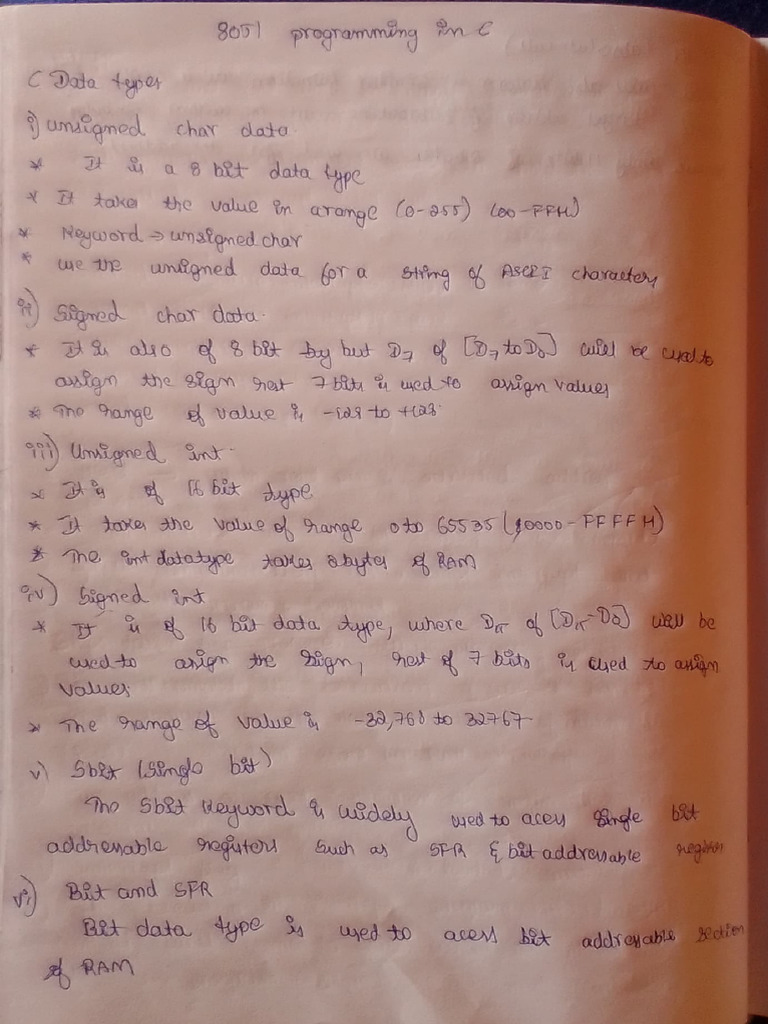 8051 programming in C
C Data types
i) unsigned char data.
* It is a 8 bit data type
* It takes the value in a range (0-255) (00-FFH)
* Keyword → unsigned char
* we use unsigned data for a string of ASCII characters
ii) Signed char data.
* It is also of 8 bit but D7 of [D7 to D0] will be used to
assign the sign rest 7 bits is used to assign values
* The range of value is -128 to +128.
iii) Unsigned int.
* It is of 16 bit type
* It takes the value of range 0 to 65535 (0000-FFFFH)
* The int datatype takes 2 bytes of RAM
iv) Signed int
* It is of 16 bit data type, where D15 of [D15-D0] will be
used to asign the sign, rest of 7 bits is used to assign
values
* The range of value is -32,768 to 32767
v) Sbit (single bit)
The Sbit keyword is widely used to acess single bit
addressable registers such as SFR & bit addressable
vi) Bit and SFR
Bit data type is used to acess bit addressable section
of RAM